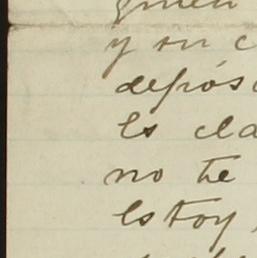 y su c
depós
Es cla
no te
Estoy